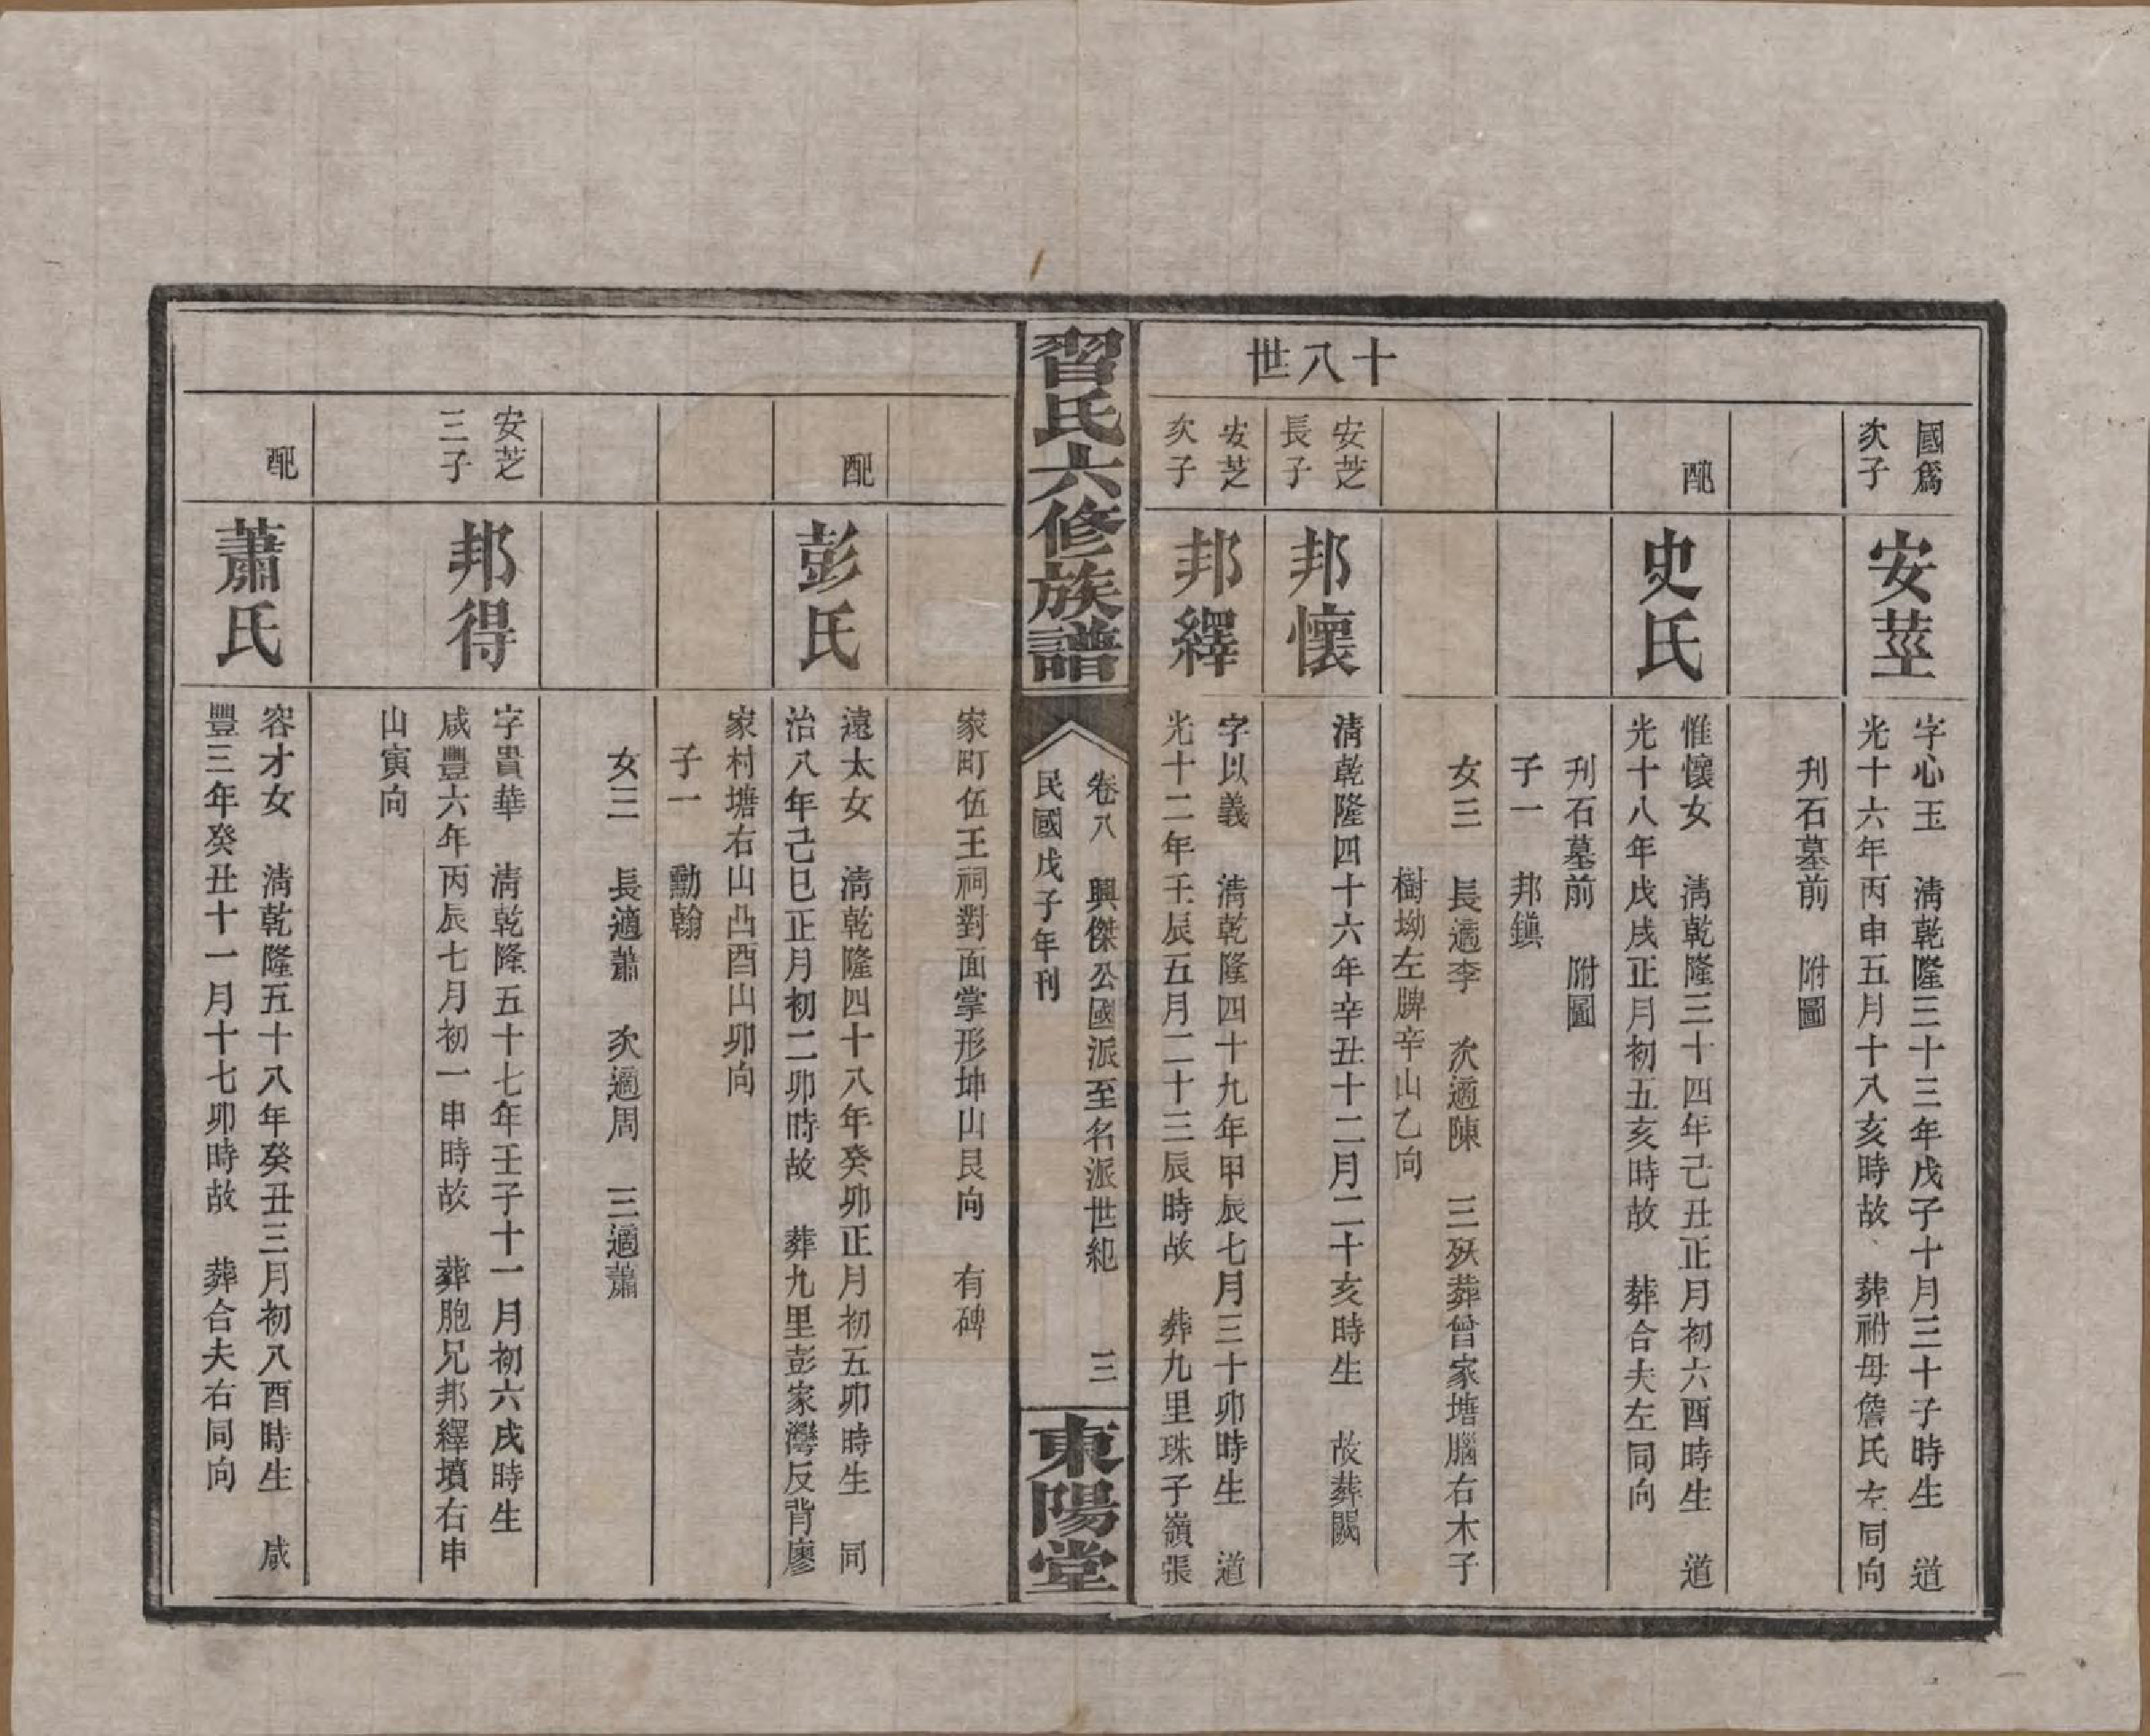 十八世
國爲
次子
安莖
字心玉　淸乾隆三十三年戊子十月三十子時生　道
光十六年丙申五月十八亥時故　葬祔母詹氏左同向
刋石墓前　附圖
配
史氏
惟懷女　淸乾隆三十四年己丑正月初六酉時生　道
光十八年戊戌正月初五亥時故　葬合夫左同向
刋石墓前　附圖
子一　邦鎮
女三　長適李　次適陳　三殀葬曾家塘腦右木子
樹坳左脾辛山乙向
安芝
長子
邦懷
淸乾隆四十六年辛丑十二月二十亥時生　故葬闕
安芝
次子
邦繹
字以義　淸乾隆四十九年甲辰七月三十卯時生　道
光十二年壬辰五月二十三辰時故　葬九里珠子嶺張
習氏六修族譜
卷八　興傑公國派至名派世紀　三
民國戊子年刊
東陽堂
家町伍王祠對面掌形坤山艮向　有碑
配
彭氏
遠太女　淸乾隆四十八年癸卯正月初五卯時生　同
治八年己巳正月初二卯時故　葬九里彭家灣反背廖
家村塘右山凸酉山卯向
子一　勳翰
女三　長適蕭　次適周　三適蕭
安芝
三子
邦得
字貴華　淸乾隆五十七年壬子十一月初六戌時生
咸豐六年丙辰七月初一申時故　葬胞兄邦繹墳右申
山寅向
配
蕭氏
容才女　淸乾隆五十八年癸丑三月初八酉時生　咸
豐三年癸丑十一月十七卯時故　葬合夫右同向